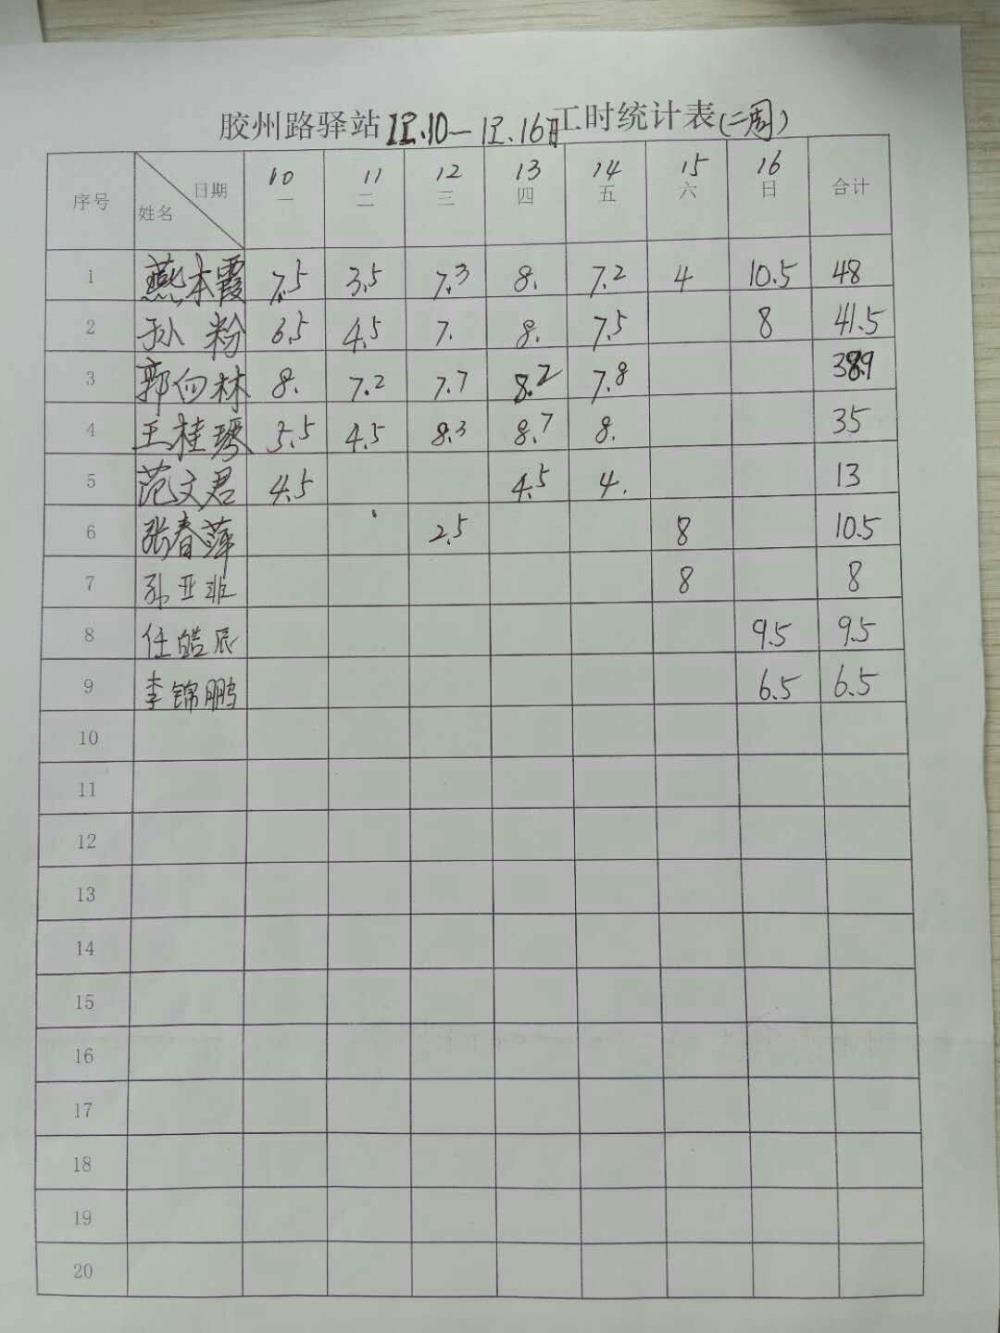 胶州路驿站12.10-12.16日工时统计表(二周)
序号 日期 姓名 10 一 11 二 12 三 13 四 14 五 15 六 16 日 合计
1 燕本霞 7.5 3.5 7.3 8. 7.2 4 10.5 48
2 孙粉 6.5 4.5 7. 8. 7.5 8 41.5
3 郭向林 8. 7.2 7.7 8.2 7.8 38.9
4 王桂琴 5.5 4.5 8.3 8.7 8. 35
5 范文君 4.5 4.5 4. 13
6 张春萍 2.5 8 10.5
7 孙亚非 8 8
8 任皓辰 9.5 9.5
9 李锦鹏 6.5 6.5
10
11
12
13
14
15
16
17
18
19
20